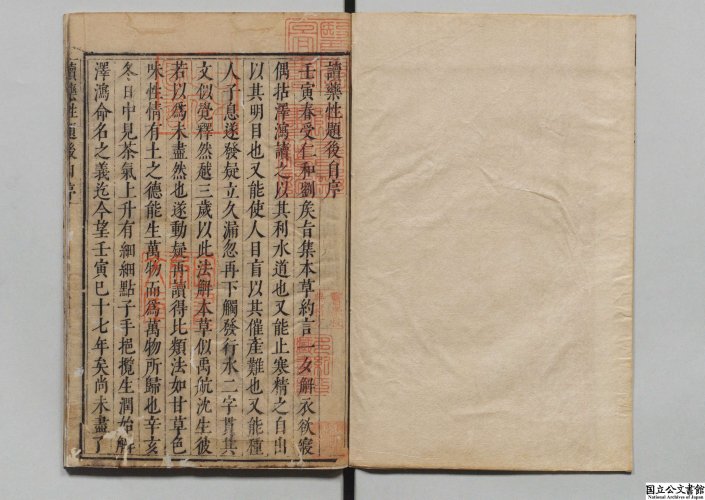 讀藥性題後自序
壬寅春受仁和劉矦旨集本草約言一夕解衣欲寢
偶拈澤瀉讀之以其利水道也又能止寒精之自出
以其明目也又能使人目盲以其催産難也又能種
人子息遂發疑立久漏忽再下觸發行水二字貫其
文似覺釋然越三歲以此法解本草似禹 沈生彼
若以爲未盡然也遂動疑再讀得比類法如甘草色
味性情有土之德能生萬物而爲萬物所歸也辛亥
冬日中見茶氣上升有細細點子手挹攬生潤始解
澤瀉命名之義迄今望壬寅已十七年矣尚未盡了
讀藥性題後自序
国立公文書館
National Archives of Japan